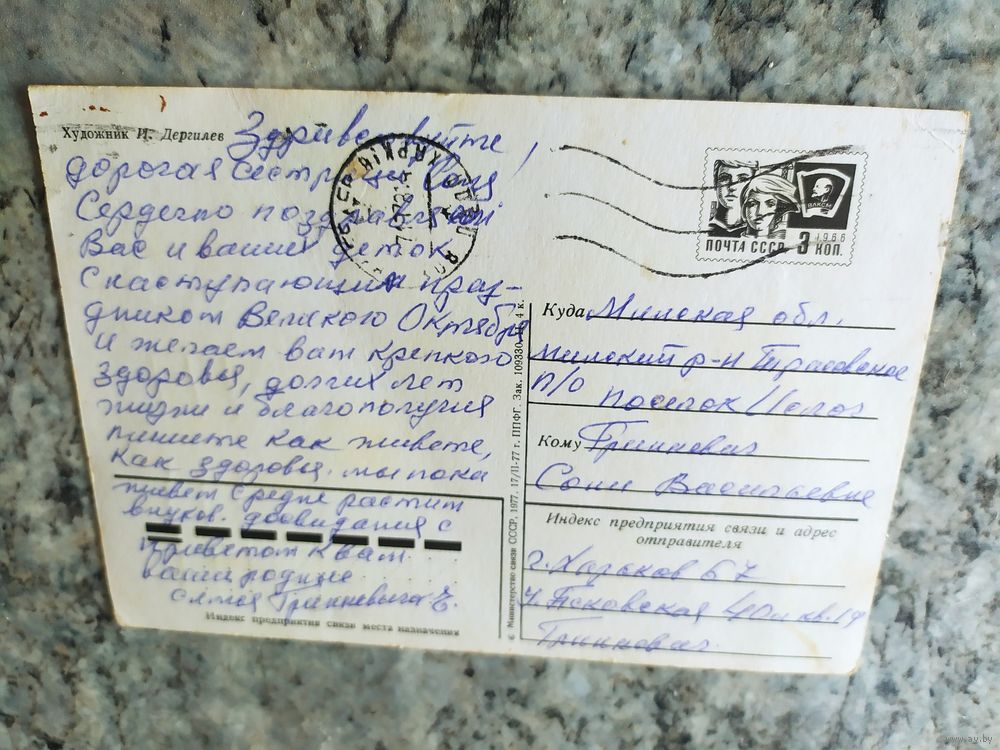 Художник И. Дергилев
Здравствуйте,
дорогая сестричка Соня
Сердечно поздравляем
Вас и ваших деток
с наступающим праз-
дником Великого Октября
и желаем вам крепкого
здоровья, долгих лет
жизни и благополучия
пишите как живете,
как здоровья. мы пока
живем средне растит
внуков. досвидания с
приветом к вам
ваши родные
семья
Индекс предприятия связи места назначения
© Министерство связи СССР, 1977. 17/II-77 г. ППФГ. Зак. 109330. 4 к.
ПОЧТА СССР 3 КОП.
1966
ВЛКСМ
Куда Минская обл.
Минский р-н
п/о поселок
Кому
Сони Васильевне
Индекс предприятия связи и адрес
отправителя
г. Харьков 67
Псковская кв. 19
www.ay.by